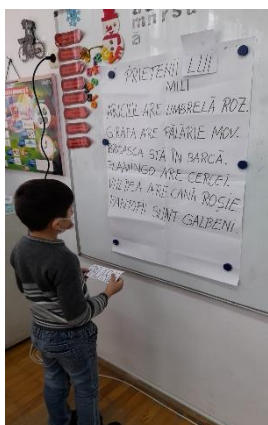 m n r s u
ă
PRIETENII LUI
MILI
ARICIUL ARE UMBRELĂ ROZ.
ARE PĂLĂRIE MOV.
BROASCA STĂ ÎN BARCĂ.
FLAMINGO ARE CERCEI.
VULPEA ARE CANĂ ROȘIE.
PANTOFII SUNT GALBENI.